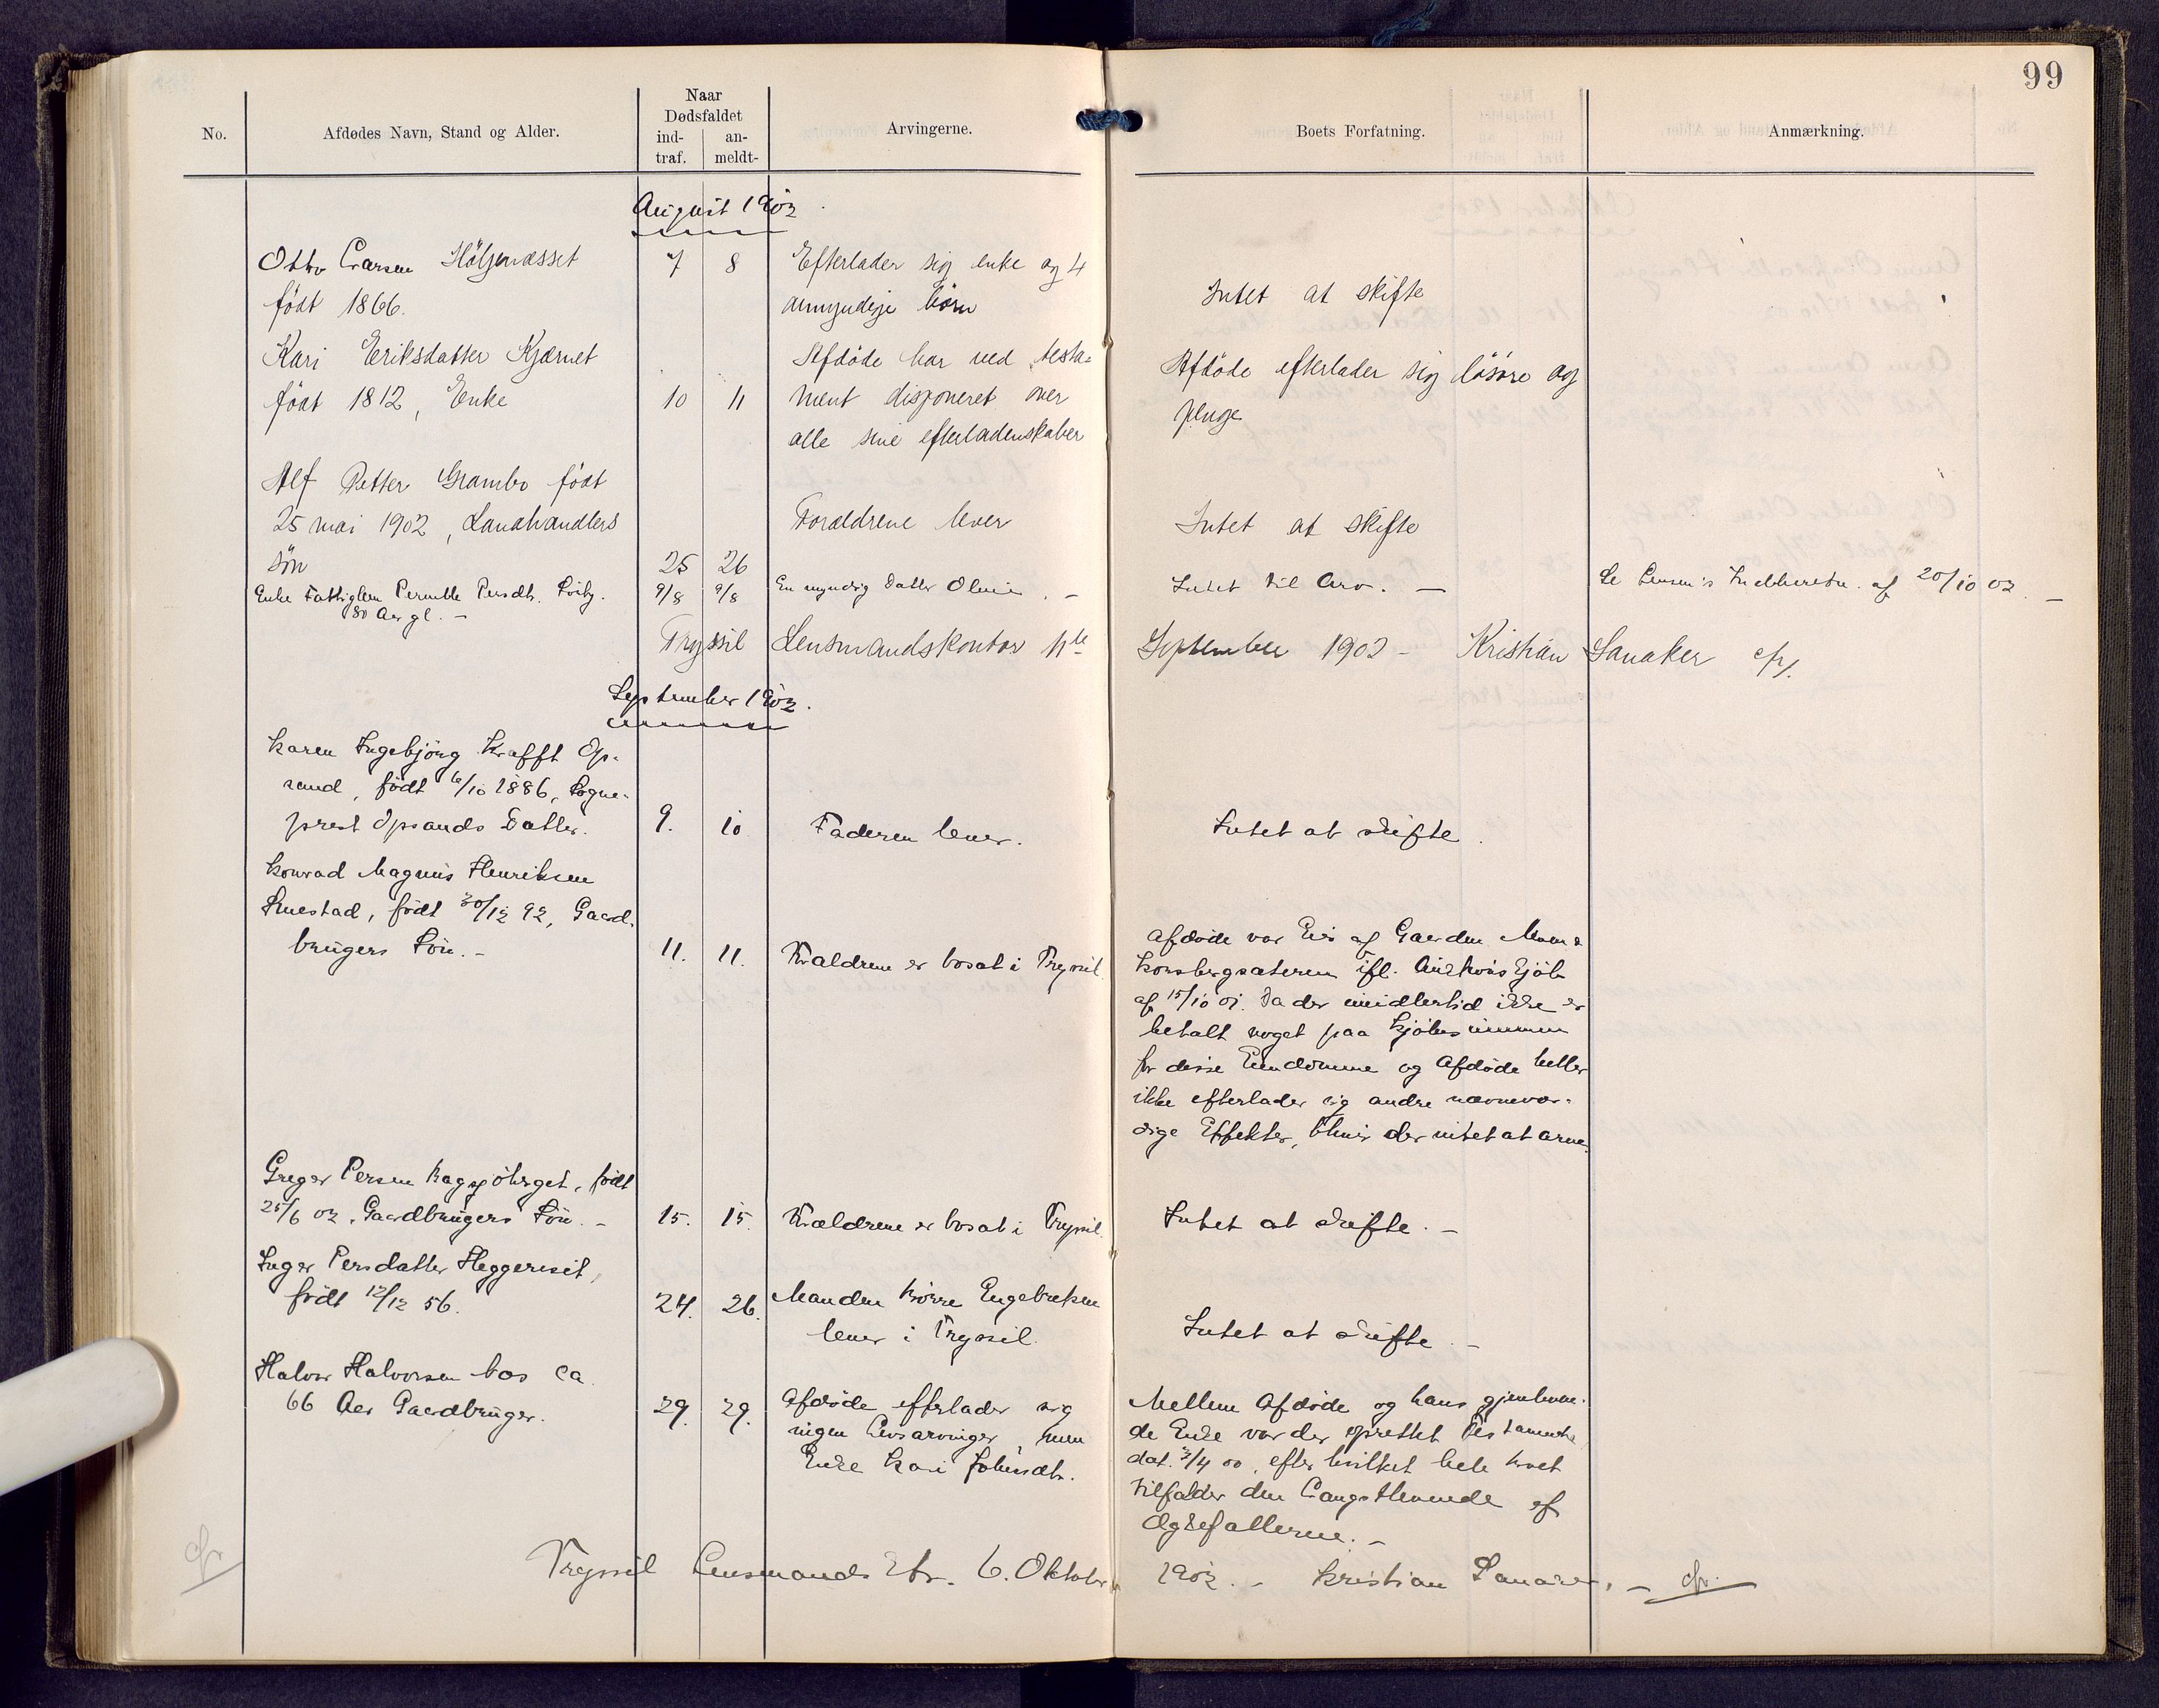 99
No.
Afdødes Navn, Stand og Alder.
Naar
Dødsfaldet
ind-
traf.
an-
meldt-
Arvingerne.
Boets Forfatning.
Anmærkning.
August 1902
Otto Larsen
født 1866.
7 8
Efterlader sig enke og 4
umyndige börn
Intet at skifte
Kari Eriksdatter Kjærnet
født 1812, Enke
10 11
Afdöde har ved testa-
ment disponeret over
alle sine efterladenskaber
Afdöde efterlader sig lösöre og
penge
Alf Petter Grambo födt
25 mai 1902, Landhandlers
sön
25 26
Forældrene lever
Intet at skifte
Enke Fattiglem Pernille Persdtr.
80 Aar gl. -
9/8 9/8
En myndig Datter Oline. -
Intet til Arv. -
Se Lensm's Indberetn. af 20/10 02. -
Trysil Lensmandskontor 11te September 1902 - Kristian Sanaker cfr.
September 1902.
Karen Ingebjörg Krafft Op-
sand, födt 6/10 1886, Sogne-
prest Opsands Datter.
9. 10
Faderen lever.
Intet at skifte.
Konrad Magnus Henriksen
födt 30/12 92, Gaard-
brugers Sön. -
11. 11.
Forældrene er bosat i Trysil
Afdöde var Eier af Gaarden Moen &
ifl. Auktions Skjöte
af 15/10 01. Da der imidlertid ikke er
betalt noget paa Kjöbesummen
for disse Eiendomme og Afdöde heller
ikke efterlader sig andre nævnevær-
dige Effekter, bliver der intet at arve.
Greger Persen födt
25/6 02, Gaardbrugers Sön. -
15. 15.
Forældrene er bosat i Trysil.
Intet at skifte. -
Inger Persdatter Heggeriset,
födt 12/12 56.
24. 26.
Manden Engebretsen
lever i Trysil.
Intet at skifte. -
Halvor Halvorsen ca.
66 Aar Gaardbruger.
29. 29.
Afdöde efterlader sig
ingen Livsarvinger, men
Enke Kari Johnsdtr.
Mellem Afdöde og hans gjenleven-
de Enke var der oprettet Testamente
dat. 3/4 00, efter hvilket hele boet
tilfalder den Længstlevende af
Ægtefællerne. -
Trysil Lensmands Ktr. 6. Oktober 1902. - Kristian Sanaker. - cfr.
cfr